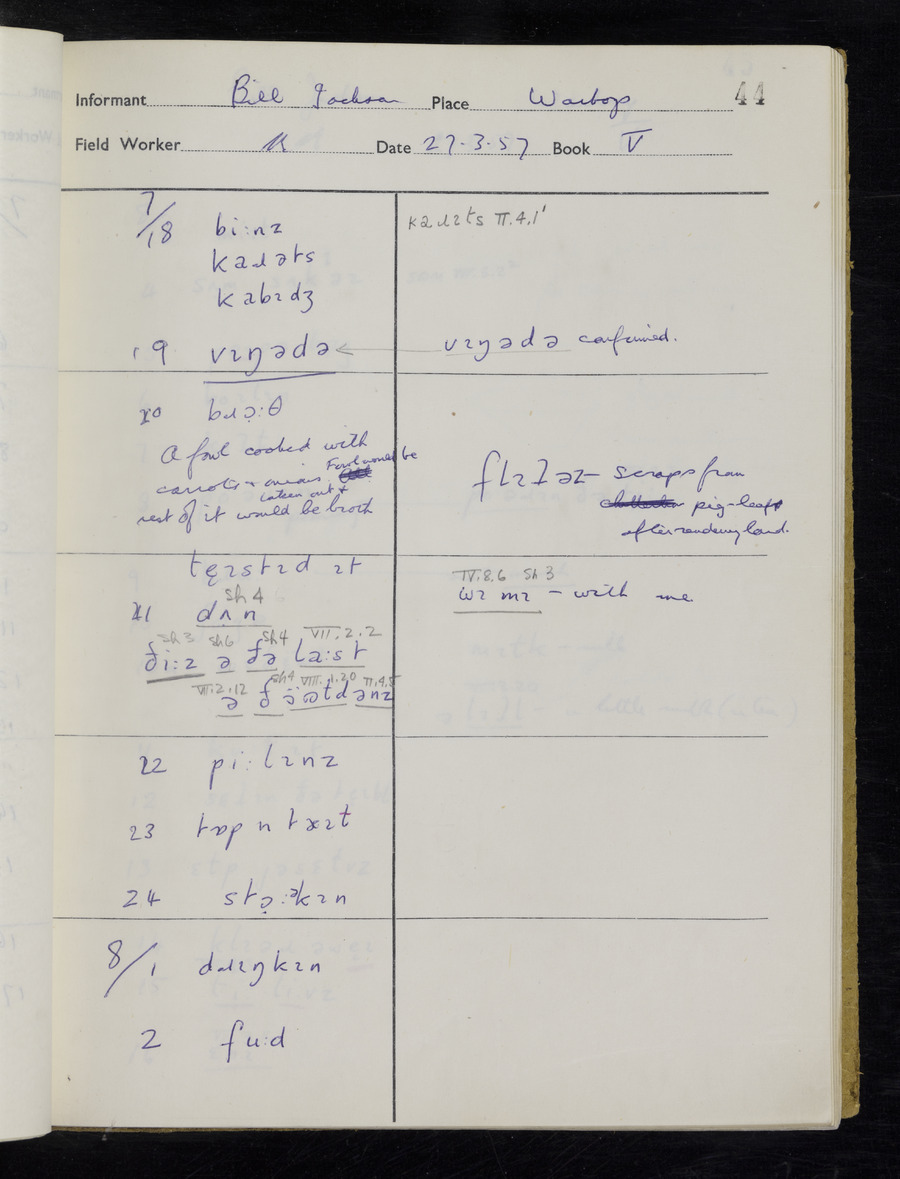 Informant Bill Jackson Place Warboys 44
Field Worker Date 27.3.57 Book V
7/18 bi:nz
kaɹəts
kabɪdʒ
kaɹɪts II.4.1
19 vɪŋədə
vɪŋədə confirmed.
20 bɹɔ̣:θ
A fowl cooked with
carrots + onions. Fowl would be
eaten out +
rest of it would be broth
flɪʔəz – scraps from
pig-leaf
after rendering lard.
tẹɪstɪd ɪt
sh 4
21 dʌn
sh 3 sh 6 sh 4 VII.2.2
ði:z ə ðə la:st
VII.2.12 sh 4 VIII.1.20 II.4.5
IV.8.6 sh 3
wɪ mɪ – with me
22 pi:lɪnz
23 tɒp n tæɪt
24 stɔ̣:ᵊkɪn
8/1 dɹɪŋkɪn
2 fu:d